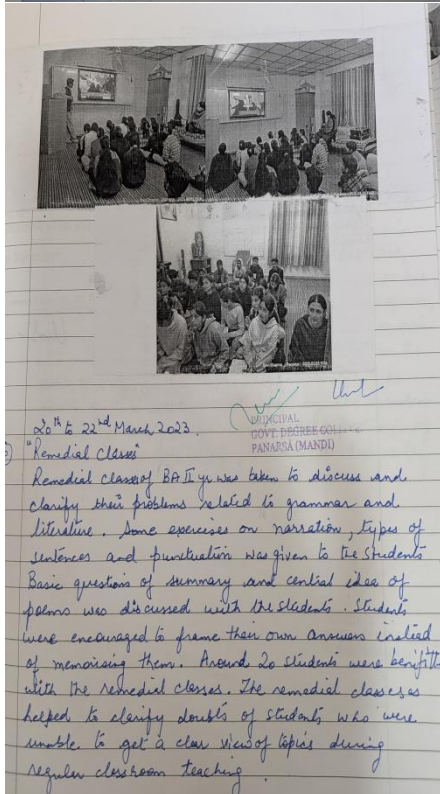 PRINCIPAL
GOVT. DEGREE COLLEGE
PANARSA (MANDI)
20th to 22nd March 2023.
"Remedial Classes"
Remedial classes of BA II yr was taken to discuss and
clarify their problems related to grammar and
literature. Some exercises on narration, types of
sentences and punctuation was given to the students
Basic questions of summary and central idea of
poems was discussed with the students. Students
were encouraged to frame their own answers instead
of memorising them. Around 20 students were benifitt
with the remedial classes. The remedial classes
helped to clarify doubts of students who were
unable to get a clear view of topics during
regular classroom teaching.